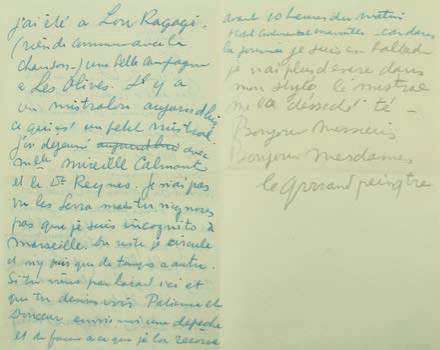 j'ai été à Lou Ragagi
(rien de commun avec la
chanson.) une belle campagne
à Les Olives. Il y a
un mistralon aujourd'hui
ce qui est un petit mistral.
j'ai dejeuné aujourd'hui avec
melle mireille Calmont
et le Dr Reynes. Je n'ai pas
vu les Serra mais tu n'ignores
pas que je suis incognito à
marseille. Du reste je circule
et n'y suis que de temps a autre.
Si tu viens par hasard ici et
que tu desires voir Patience et
Douceur envoie moi une depeche
et de facon a ce que je la recoive
avant 10 heures du matin
Hotel Continental Marseille car dans
la journée je suis en ballade
je n'ai plus d'encre dans
mon stylo le mistral
me l'a desseché
Bonjour Messieurs
Bonjour Mesdames
le grrrand peingtre